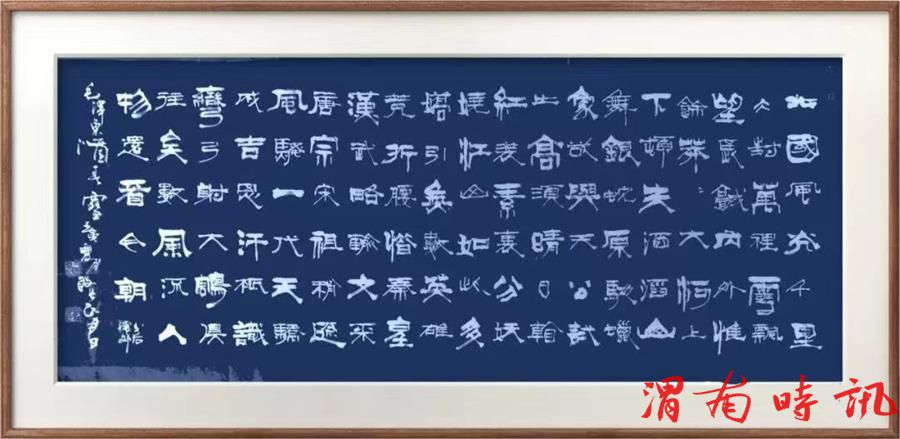 北國風光千里
冰封萬裡雪飄
望長城內外惟
餘莽〻大河上
下頓失滔滔山
舞銀蛇原馳蠟
象欲與天公試
比高須晴日看
紅裝素裹分妖
嬈江山如此多
嬌引無數英雄
競折腰惜秦皇
漢武略輸文采
唐宗宋祖稍遜
風騷一代天驕
成吉思汗祇識
彎弓射大鵰俱
往矣數風流人
物還看今朝
毛澤東 春雪
渭南時訊